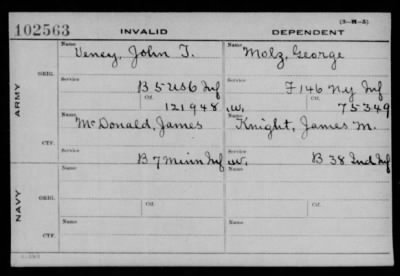 (3-H-5)
102563 INVALID DEPENDENT
Name Name
Veney, John T. Molz, George
ORIG.
Service Service
B 5 US 6 Inf F 146 NY Inf
ARMY
Ctf. Ctf.
121948 W. 75349
Name Name
McDonald, James Knight, James M.
CTF.
Service
B 7 Minn Inf W. B 38 Ind Inf
Name Name
ORIG.
Service Service
NAVY
Ctf. Ctf.
Name Name
CTF.